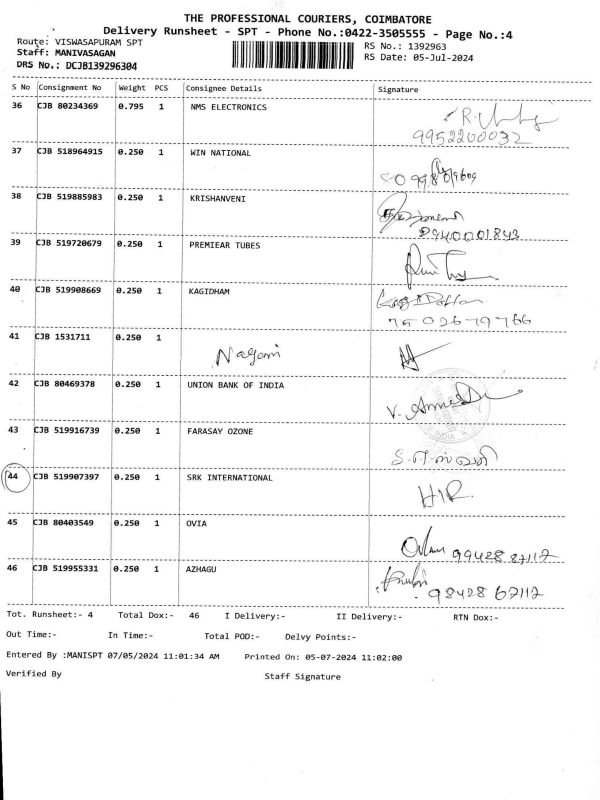 THE PROFESSIONAL COURIERS, COIMBATORE
Delivery Runsheet - SPT - Phone No.:0422-3505555 - Page No.:4
Route: VISWASAPURAM SPT
RS No.: 1392963
Staff: MANIVASAGAN
RS Date: 05-Jul-2024
DRS No.: DCJB139296304
S No Consignment No Weight PCS Consignee Details Signature
36 CJB 80234369 0.795 1 NMS ELECTRONICS
9952200032
37 CJB 518964915 0.250 1 WIN NATIONAL
38 CJB 519885983 0.250 1 KRISHANVENI
39 CJB 519720679 0.250 1 PREMIEAR TUBES
40 CJB 519908669 0.250 1 KAGIDHAM
75 02679766
41 CJB 1531711 0.250 1
Nagami
42 CJB 80469378 0.250 1 UNION BANK OF INDIA
43 CJB 519916739 0.250 1 FARASAY OZONE
44 CJB 519907397 0.250 1 SRK INTERNATIONAL
45 CJB 80403549 0.250 1 OVIA
99428 87117
46 CJB 519955331 0.250 1 AZHAGU
98428 67117
Tot. Runsheet:- 4 Total Dox:- 46 I Delivery:- II Delivery:- RTN Dox:-
Out Time:- In Time:- Total POD:- Delvy Points:-
Entered By :MANISPT 07/05/2024 11:01:34 AM Printed On: 05-07-2024 11:02:00
Verified By Staff Signature